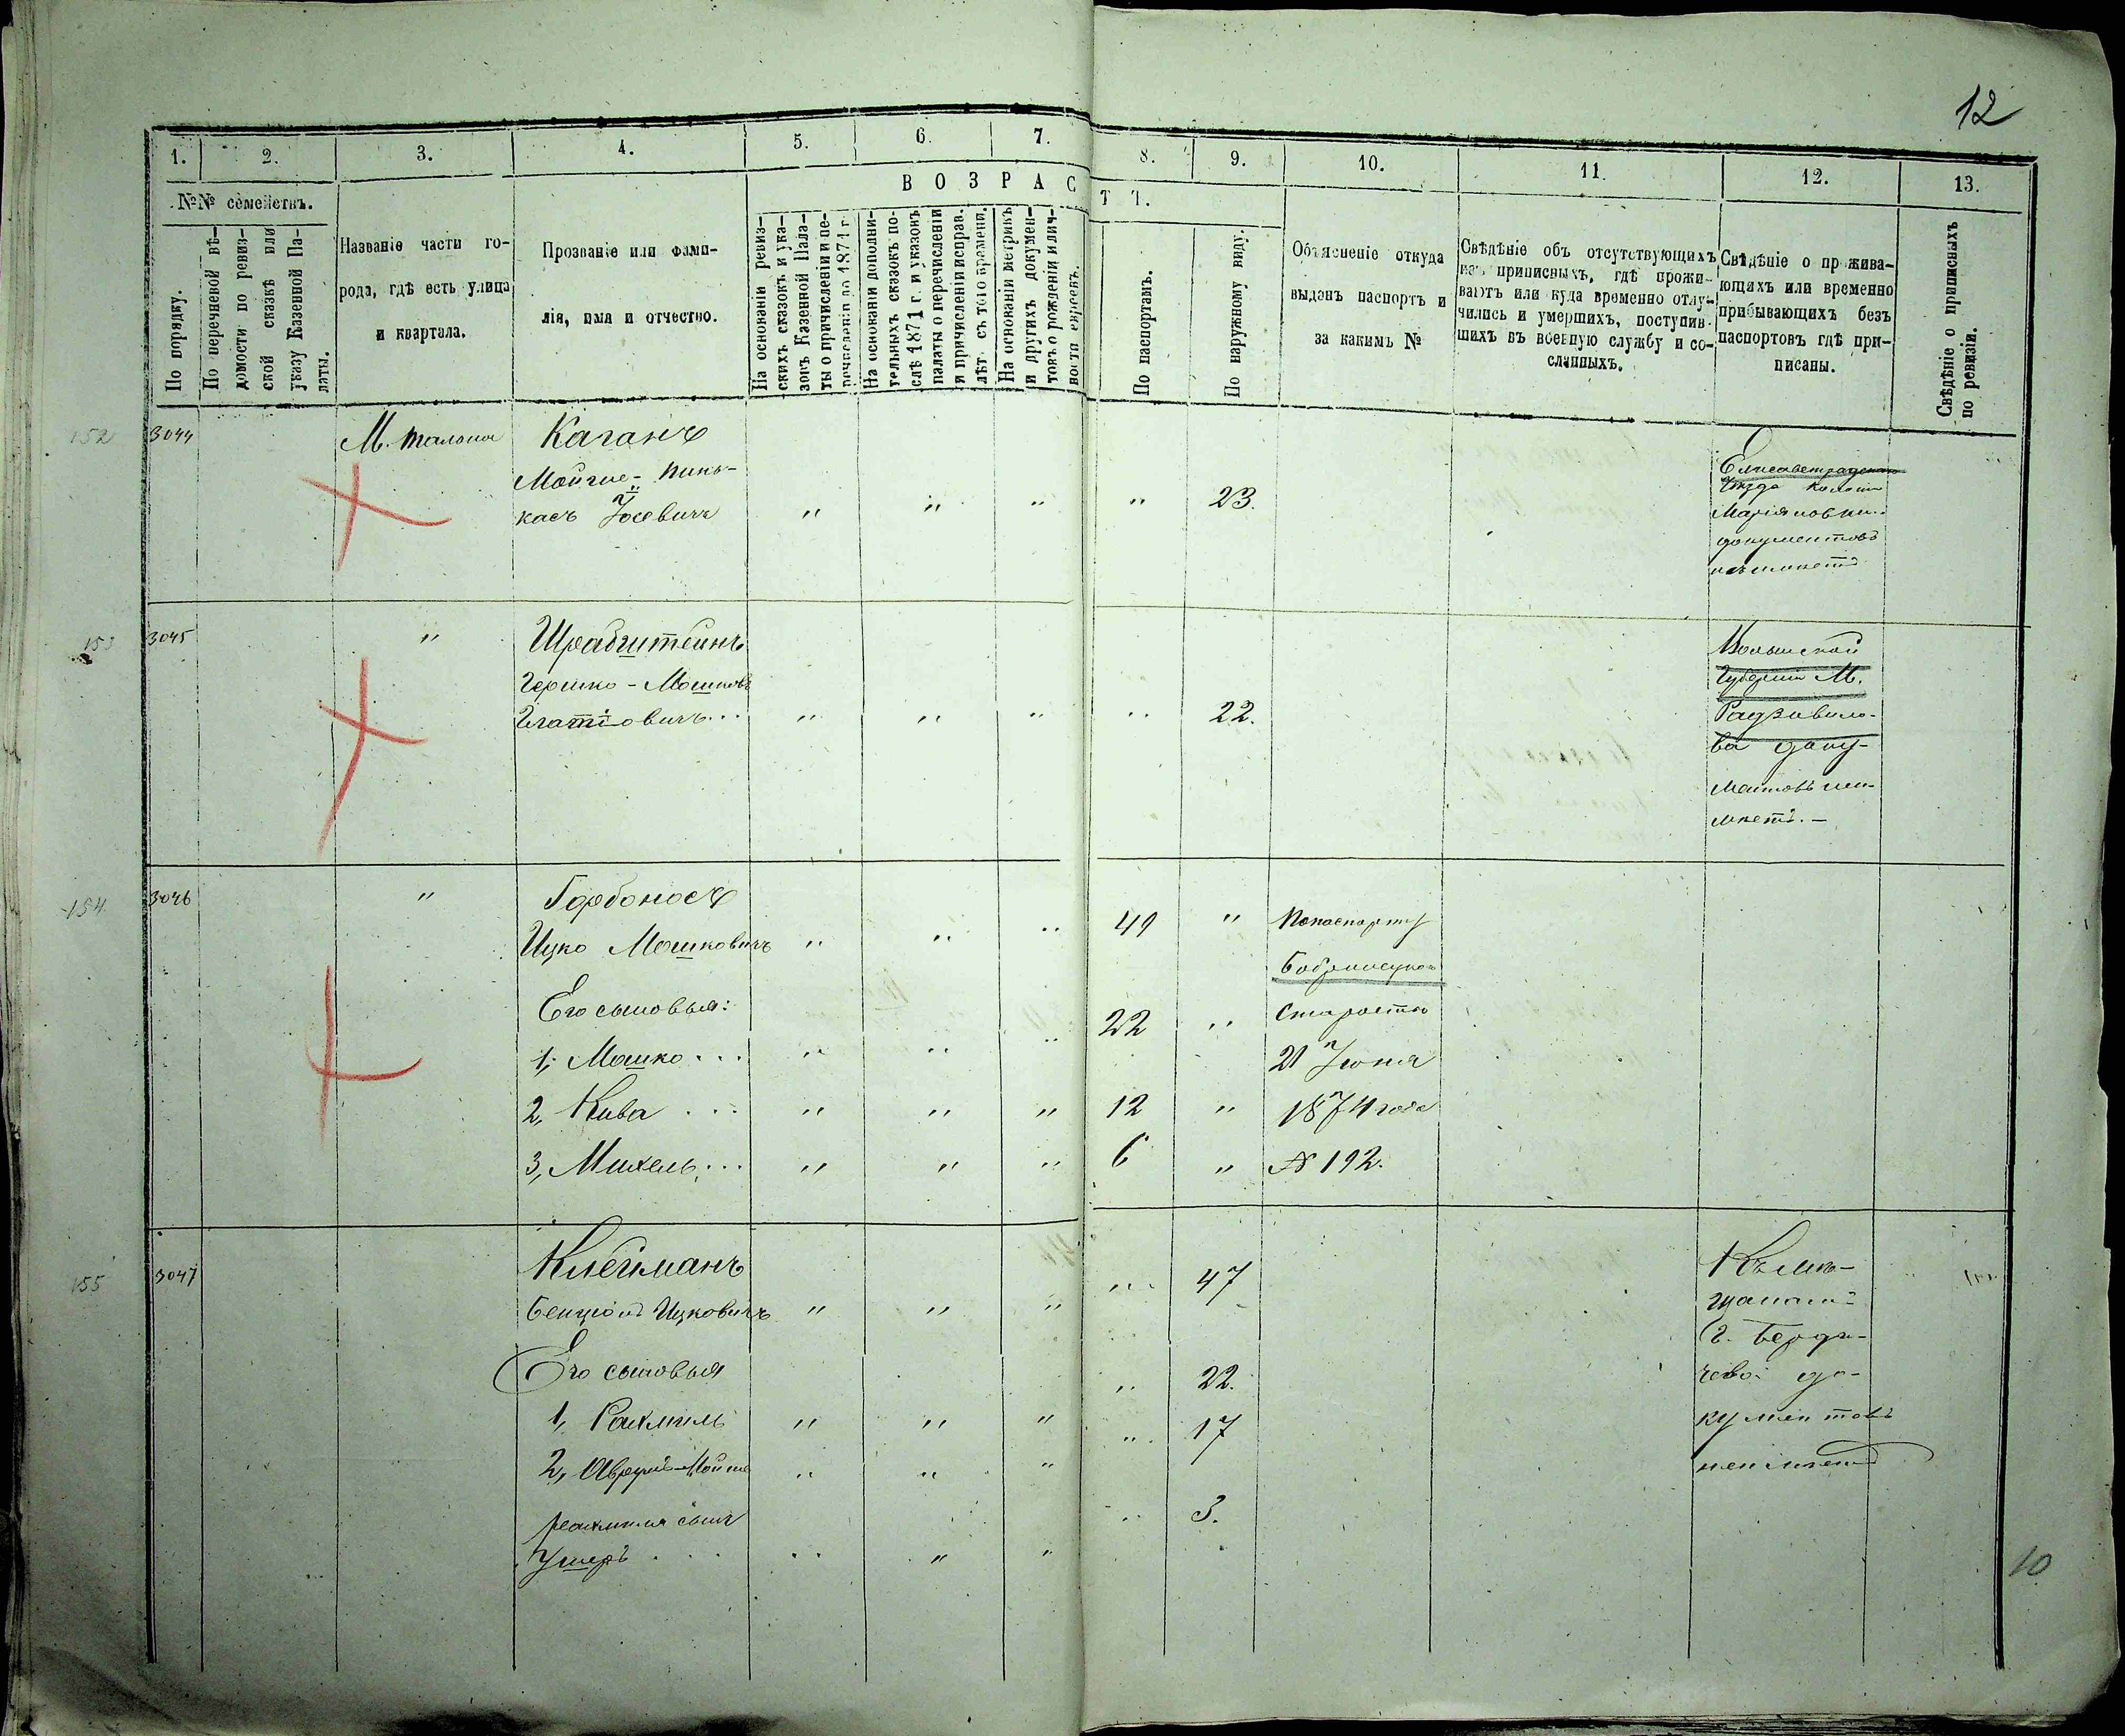 12
1.
2.
3.
4.
5.
6.
7.
8.
9.
10.
11.
12.
13.
№№ семействъ.
ВОЗРАС
ТЪ.
По порядку.
По перечневой вѣ-
домости по ревиз-
ской сказкѣ или
указу Казенной Па-
латы.
Названіе части го-
рода, гдѣ есть улица
и квартала.
Прозваніе или фами-
лія, имя и отчество.
На основаніи ревиз-
скихъ сказокъ и ука-
зовъ Казенной Пала-
ты о причисленіи и пе-
речисленіи до 1871 г.
На основаніи дополни-
тельныхъ сказокъ по-
слѣ 1871 г. и указовъ
палаты о перечисленіи
и причисленіи исправ.
лѣтъ съ того времени.
На основаніи метрикъ
и другихъ докумен-
товъ о рожденіи и лич-
ности евреевъ.
По паспортамъ.
По наружному виду.
Объясненіе откуда
выданъ паспортъ и
за какимъ №
Свѣдѣніе объ отсутствующихъ
изъ приписныхъ, гдѣ прожи-
ваютъ или куда временно отлу-
чились и умершихъ, поступив-
шихъ въ военную службу и со-
сланныхъ.
Свѣдѣніе о прожива-
ющихъ или временно
прибывающихъ безъ
паспортовъ гдѣ при-
писаны.
Свѣдѣніе о приписныхъ
по ревизіи.
152
3044
М. Талона
Каганъ
Мойше-Пинь-
касъ Іосевичъ " " " " 23.
Елисаветградскаго
Уѣзда Колоніи
Маріяновки
документовъ
неимѣетъ
153
3045
"
Шрабштейнъ
Гершко-Мошковъ
" " " " 22.
Волынской
Губерніи М.
Радзивило-
ва доку-
ментовъ неи-
мѣетъ.
154
3046
"
Горбоносъ
Ицко Мошковичъ " " " 49 "
Его сыновья:
1, Мошко . . . " " " 22 "
2, Кива . . . " " " 12 "
3, Михель . . . " " " 6 "
Попаспорту
Бобринецкаго
Старосты
21 Іюня
1874 года
№ 192.
155
3047
Клейманъ
Бенціонъ Ицковичъ " " " " 47
Его сыновья
1, Рахмиль " " " " 22.
2, Аврумъ-Мойше " " " " 17
Рахмиля сынъ
Ушеръ . . . " " " " 3.
Къ мѣ-
щанамъ
г. Берди-
чева до-
кументовъ
неимѣетъ
10